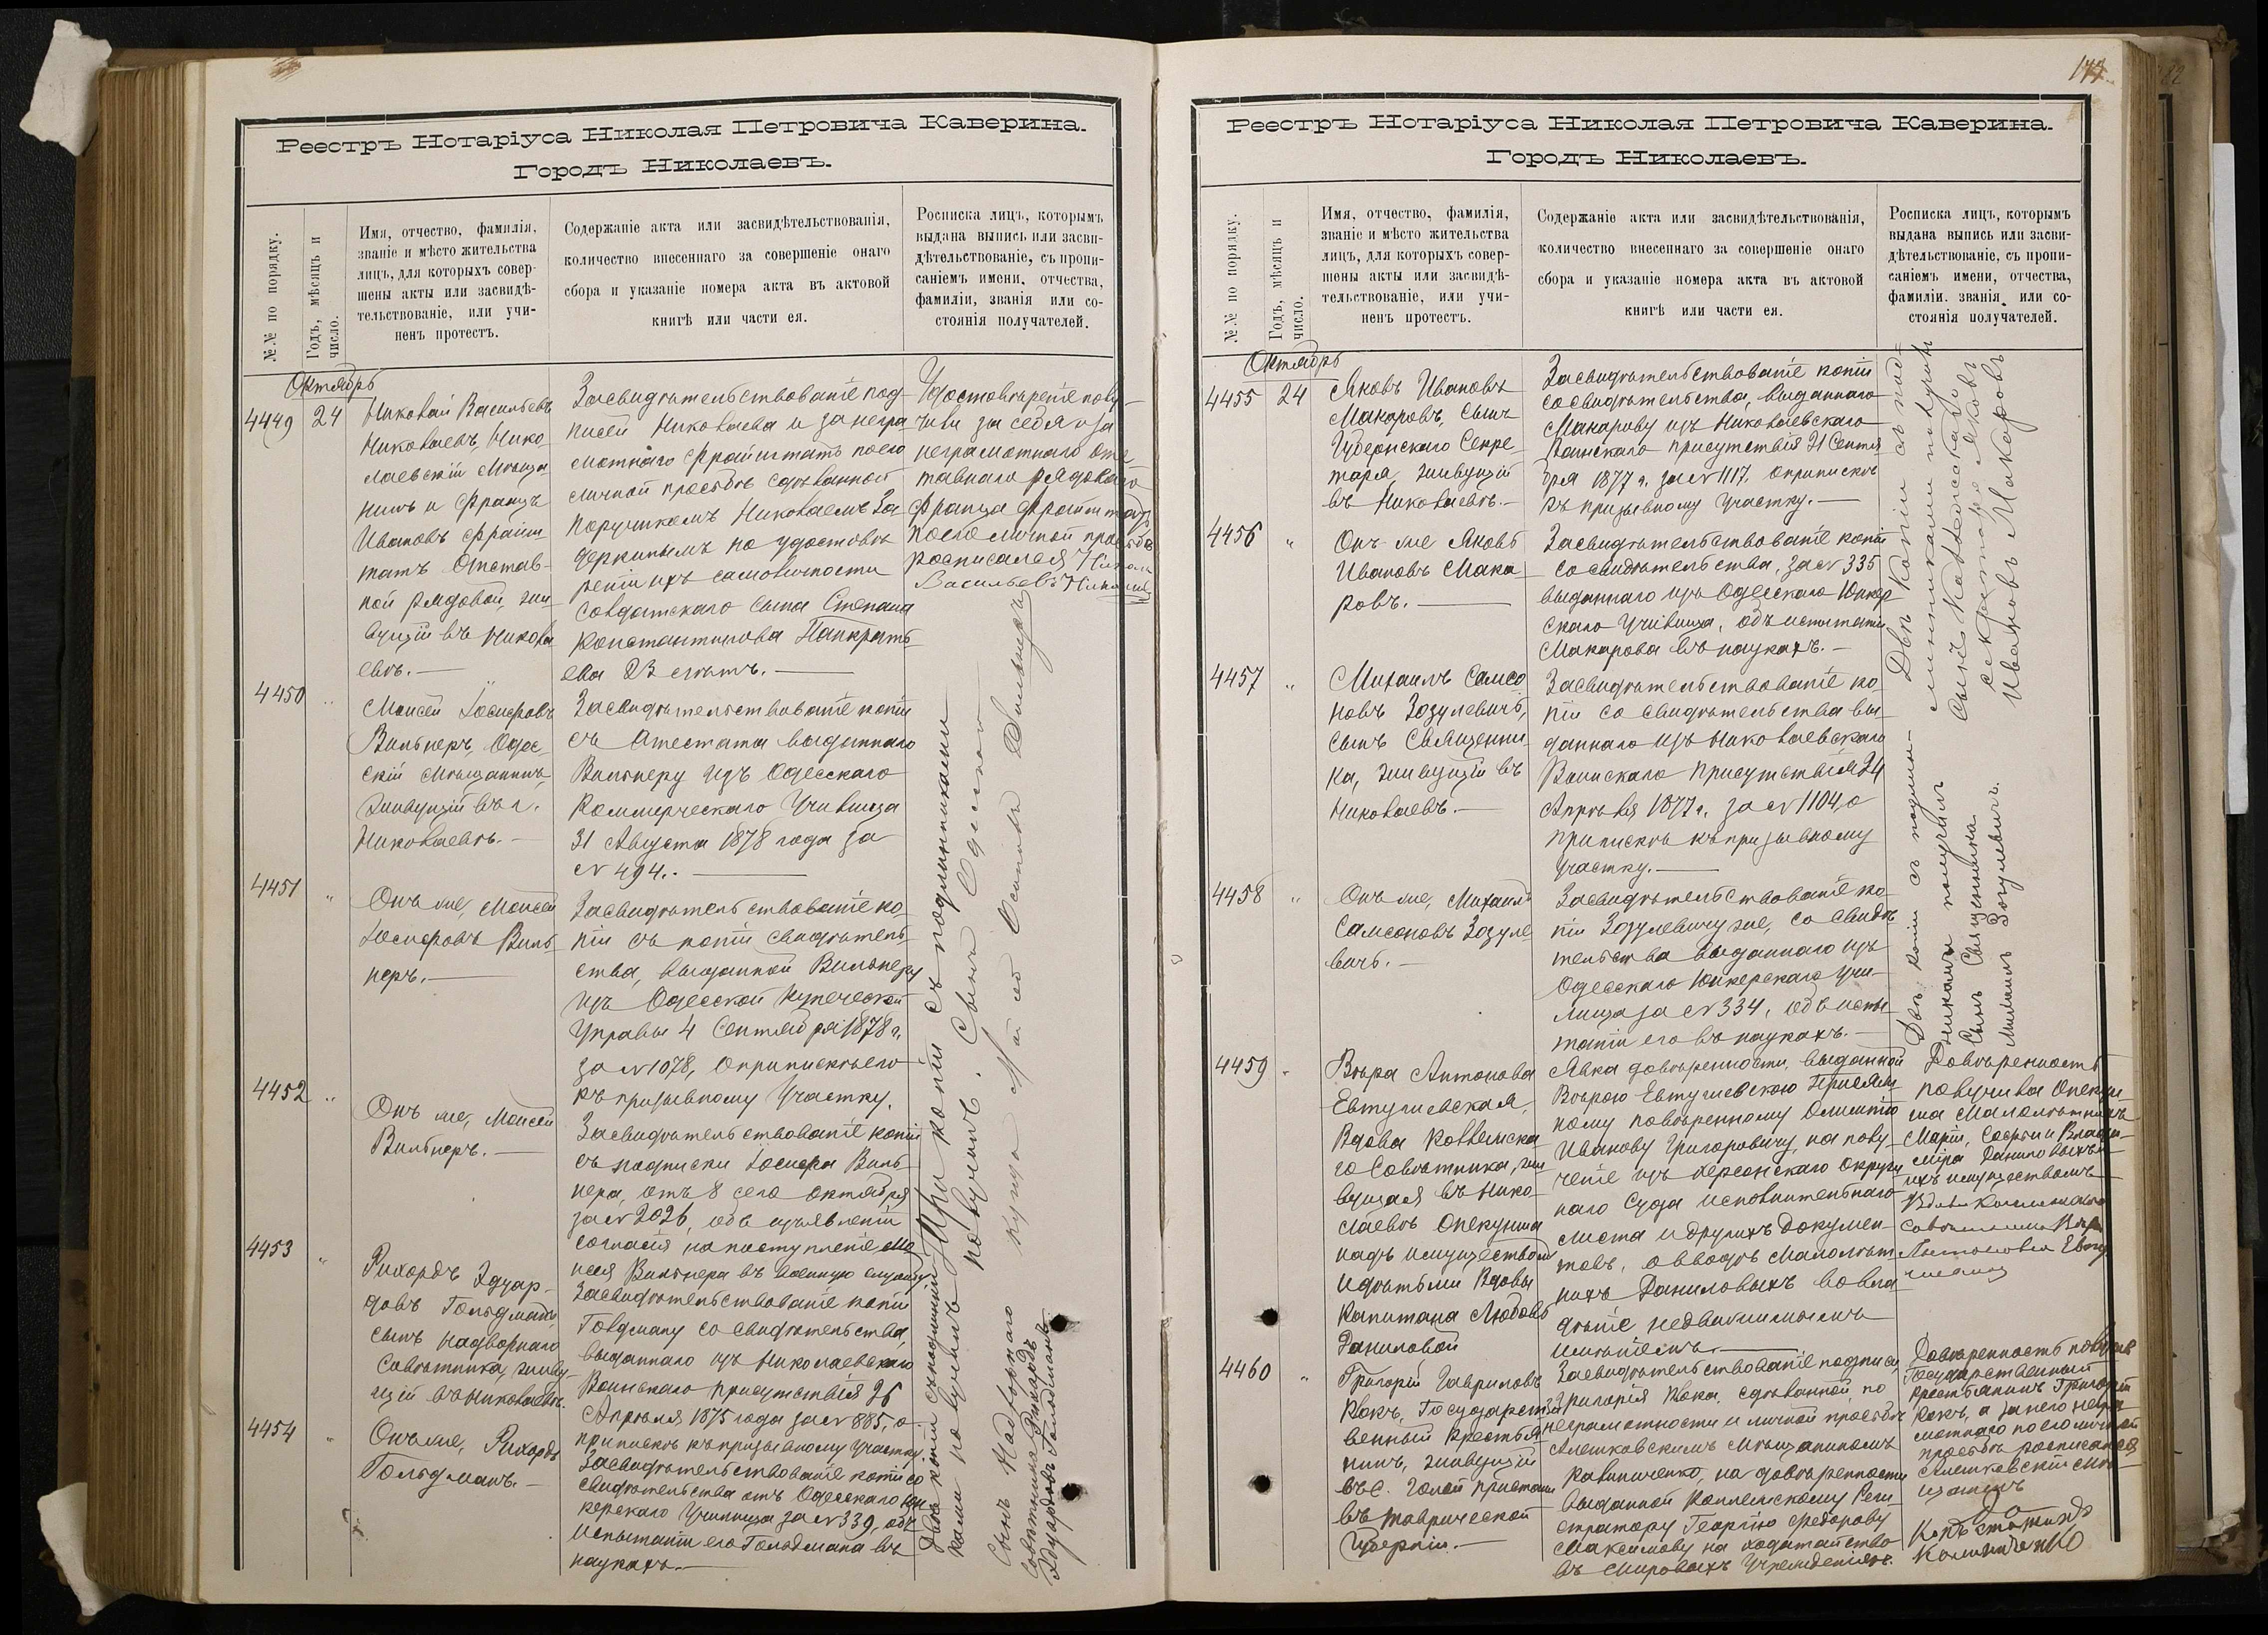 Реестръ Нотаріуса Николая Петровича Каверина.
Городъ Николаевъ.
№№ по порядку.
Годъ, мѣсяцъ и
число.
Имя, отчество, фамилія,
званіе и мѣсто жительства
лицъ, для которыхъ совер-
шены акты или засвидѣ-
тельствованіе, или учи-
ненъ протестъ.
Содержаніе акта или засвидѣтельствованія,
количество внесеннаго за совершеніе онаго
сбора и указаніе номера акта въ актовой
книгѣ или части ея.
Росписка лицъ, которымъ
выдана выпись или засви-
дѣтельствованіе, съ пропи-
саніемъ имени, отчества,
фамиліи, званія или со-
стоянія получателей.
Октябрь
4449
24
Николай Васильевъ
Николаевъ, Нико
лаевскій мѣща
нинъ и Францъ
Ивановъ Фрайш
татъ Отстав-
ной рядовой, жи
вущій въ Никола
евѣ.—
Засвидѣтельствованіе под-
писей Николаева и за негра
мотнаго Фрайштатъ по его
личной просьбѣ сдѣланной
поручикомъ Николаемъ За
деркинымъ на удостовѣ
реніи ихъ самоличности
Солдатскаго сына Степана
Константинова Панкрать
ева 23 лѣтъ.—
Удостовѣреніе полу-
чили за себя и за
неграмотнаго отс
тавнаго рядоваго
Франца Фрайштадъ
по его личной просьбѣ
росписался Никола
Васильевъ Николаевъ
4450
"
Моисей Іосифовъ
Вильнеръ, Одес-
скій мѣщанинъ,
живущій въ г.
Николаевѣ.—
Засвидѣтельствованіе копіи
съ Атестата выданнаго
Вильнеру изъ Одесскаго
Коммерческаго Училища
31 Августа 1878 года за
№ 494.—
4451
"
Онъ же, Моисей
Іосифовъ Виль-
неръ.—
Засвидѣтельствованіе ко-
піи съ копіи свидѣтель-
ства, выданной Вильнеру
изъ Одесской Купеческой
Управы 4 Сентября 1878 г.
за № 1078, о припискѣ его
къ призывному участку.
4452
"
Онъ же, Моисей
Вильнеръ.—
Засвидѣтельствованіе копіи
съ подписки Іосифа Виль-
нера, отъ 8 сего октября
за № 2026, объ изъявленіи
согласія на поступленіе Мо
исея Вильнера въ военную службу.
Три копіи съ подлинниками
получилъ. Сынъ Одесскаго
купца Мойсей Осиповъ Вильнеръ
4453
"
Рихардъ Эдуар-
довъ Гольдманъ,
сынъ надворнаго
Совѣтника, живу-
щій въ Николаевѣ.
Засвидѣтельствованіе копіи
Голдману со свидѣтельства,
выданнаго изъ Николаевскаго
Воинскаго присутствія 26
Апрѣля 1875 года за № 885, о
припискѣ къ призывному участку.
4454
"
Онъ же, Рихардъ
Гольдманъ.—
Засвидѣтельствованіе копіи со
свидѣтельства отъ Одесскаго Юн
керскаго Училища за № 339, объ
испытаніи его Гольдмана въ
наукахъ.—
Двѣ копіи съ подлинни
ками получилъ
Сынъ Надворнаго
Совѣтника Рихардъ
Эдуардовъ Гольдманъ
Реестръ Нотаріуса Николая Петровича Каверина.
Городъ Николаевъ.
№№ по порядку.
Годъ, мѣсяцъ и
число.
Имя, отчество, фамилія,
званіе и мѣсто жительства
лицъ, для которыхъ совер-
шены акты или засвидѣ-
тельствованіе, или учи-
ненъ протестъ.
Содержаніе акта или засвидѣтельствованія,
количество внесеннаго за совершеніе онаго
сбора и указаніе номера акта въ актовой
книгѣ или части ея.
Росписка лицъ, которымъ
выдана выпись или засви-
дѣтельствованіе, съ пропи-
саніемъ имени, отчества,
фамиліи. званія или со-
стоянія получателей.
Октябрь
4455
24
Яковъ Ивановъ
Макаровъ, сынъ
Губернскаго Секре
таря, живущій
въ Николаевѣ.—
Засвидѣтельствованіе копіи
со свидѣтельства, выданнаго
Макарову изъ Николаевскаго
Воинскаго присутствія 21 Сентя
бря 1877 г. за № 1117, о припискѣ
къ призывному участку.—
4456
"
Онъ же Яковъ
Ивановъ Мака
ровъ.—
Засвидѣтельствованіе копіи
со свидѣтельства, за № 335
выданнаго изъ Одесскаго Юнкер
скаго Училища, объ испытаніи
Макарова въ наукахъ.—
Двѣ копіи съ под-
линниками получилъ
Сынъ Коллежскаго
Секретаря Яковъ
Ивановъ Макаровъ
4457
"
Михаилъ Самсо
новъ Зозулевичъ,
сынъ Священни
ка, живущій въ
Николаевѣ.—
Засвидѣтельствованіе ко-
піи со свидѣтельства вы-
даннаго изъ Николаевскаго
Воинскаго Присутствія 24
Апрѣля 1877 г. за № 1104, о
припискѣ къ призывному
участку.—
4458
"
Онъ же, Михаилъ
Самсоновъ Зозуле
вичъ.—
Засвидѣтельствованіе ко-
піи Зозулевичу же, со свидѣ
тельства выданнаго изъ
Одесскаго Юнкерскаго учи-
лища за № 334, объ испы
таніи его въ наукахъ.—
Двѣ копіи съ подлин-
никомъ получилъ
Сынъ Священника
Михаилъ Зозулевичъ.
4459
"
Вѣра Антонова
Евтушевская,
Вдова Коллежска
го Совѣтника, жи
вущая въ Нико-
лаевѣ Опекунша
надъ имуществомъ
и дѣтьми Вдовы
Капитана Любовь
Даниловой
Явка довѣренности, выданной
Вѣрою Евтушевскою Присяж
ному повѣренному Олимпію
Иванову Григоровичу, на полу-
ченіе изъ Херсонскаго Окруж
наго Суда исполнительнаго
листа и другихъ докумен-
товъ, о вводѣ малолѣт
нихъ Даниловыхъ во вла
дѣніе недвижимымъ
имѣніемъ.—
Довѣренность
получила Опекун-
ша Малолѣтнихъ
Маріи, Софьи и Влади-
міра Даниловыхъ и
ихъ имуществомъ
Вдова Коллежскаго
Совѣтника Вѣра
Антоновна Евту
шевская
4460
"
Григорій Гавриловъ
Кокъ, Государст
венный крестья
нинъ, живущій
въ с. Голой пристани
въ Таврической
Губерніи.—
Засвидѣтельствованіе подписи,
Григорія Кока, сдѣланной, по
неграмотности и личной просьбѣ
Алешковскимъ мѣщаниномъ
Калиниченко, на довѣренности
выданной Коллежскому Реги
стратору Георгію Федорову
Максимову на ходатайство
въ мировыхъ Учрежденіяхъ.
Довѣренность получилъ
Государственный
крестьянинъ Григорій
Кокъ, а за него негра
мотнаго по его личной
просьбѣ росписался
Алешковскій мѣ-
щанинъ
Калиниченко